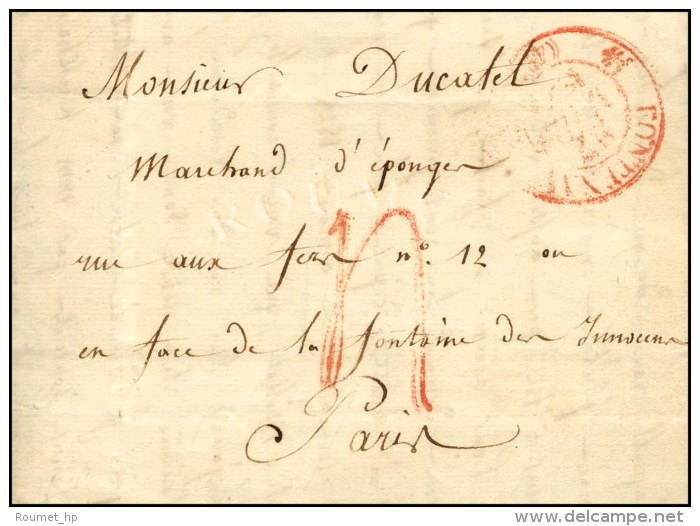 Monsieur Ducatel
Marchand d'éponges
rue aux fers n°. 12 ou
en face de la fontaine des Innocens
Paris
ROUMET
Roumet_hp
© delcampe.net